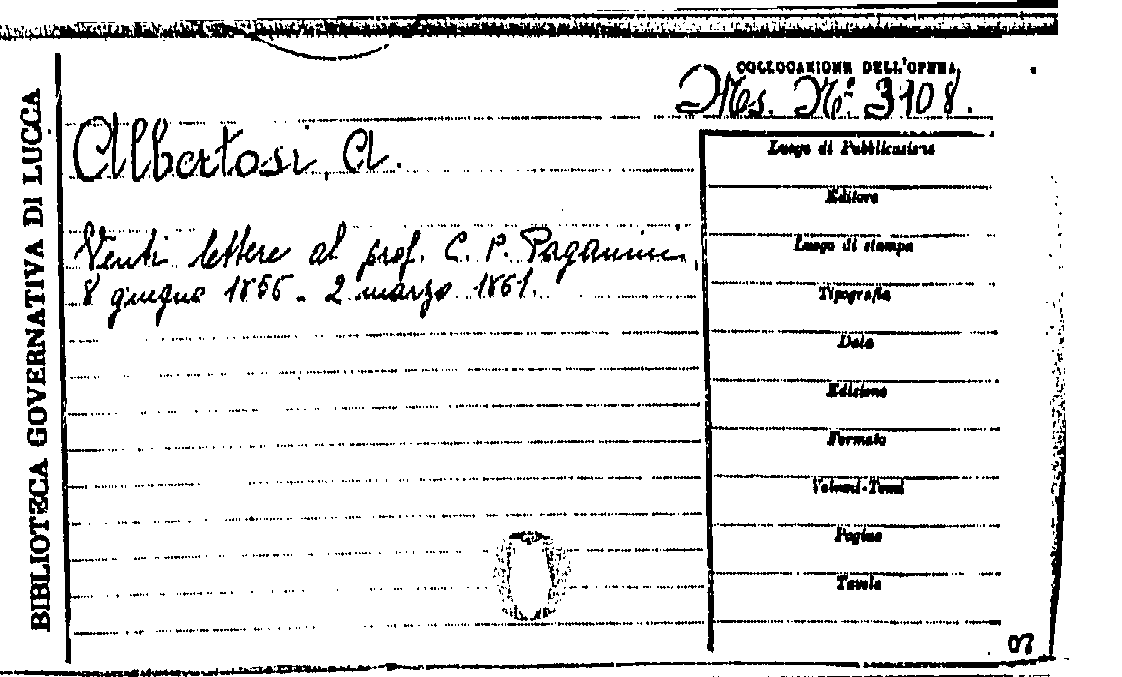 BIBLIOTECA GOVERNATIVA DI LUCCA
COLLOCAZIONE DELL'OPERA
Ms. Nº. 3108.
Albertosi, A.
Venti lettere al prof. C. P. Paganini,
8 giugno 1856 - 2 marzo 1861.
Luogo di Pubblicazione
Editore
Luogo di stampa
Tipografia
Data
Edizione
Formato
Volumi-Tomi
Pagine
Tavole